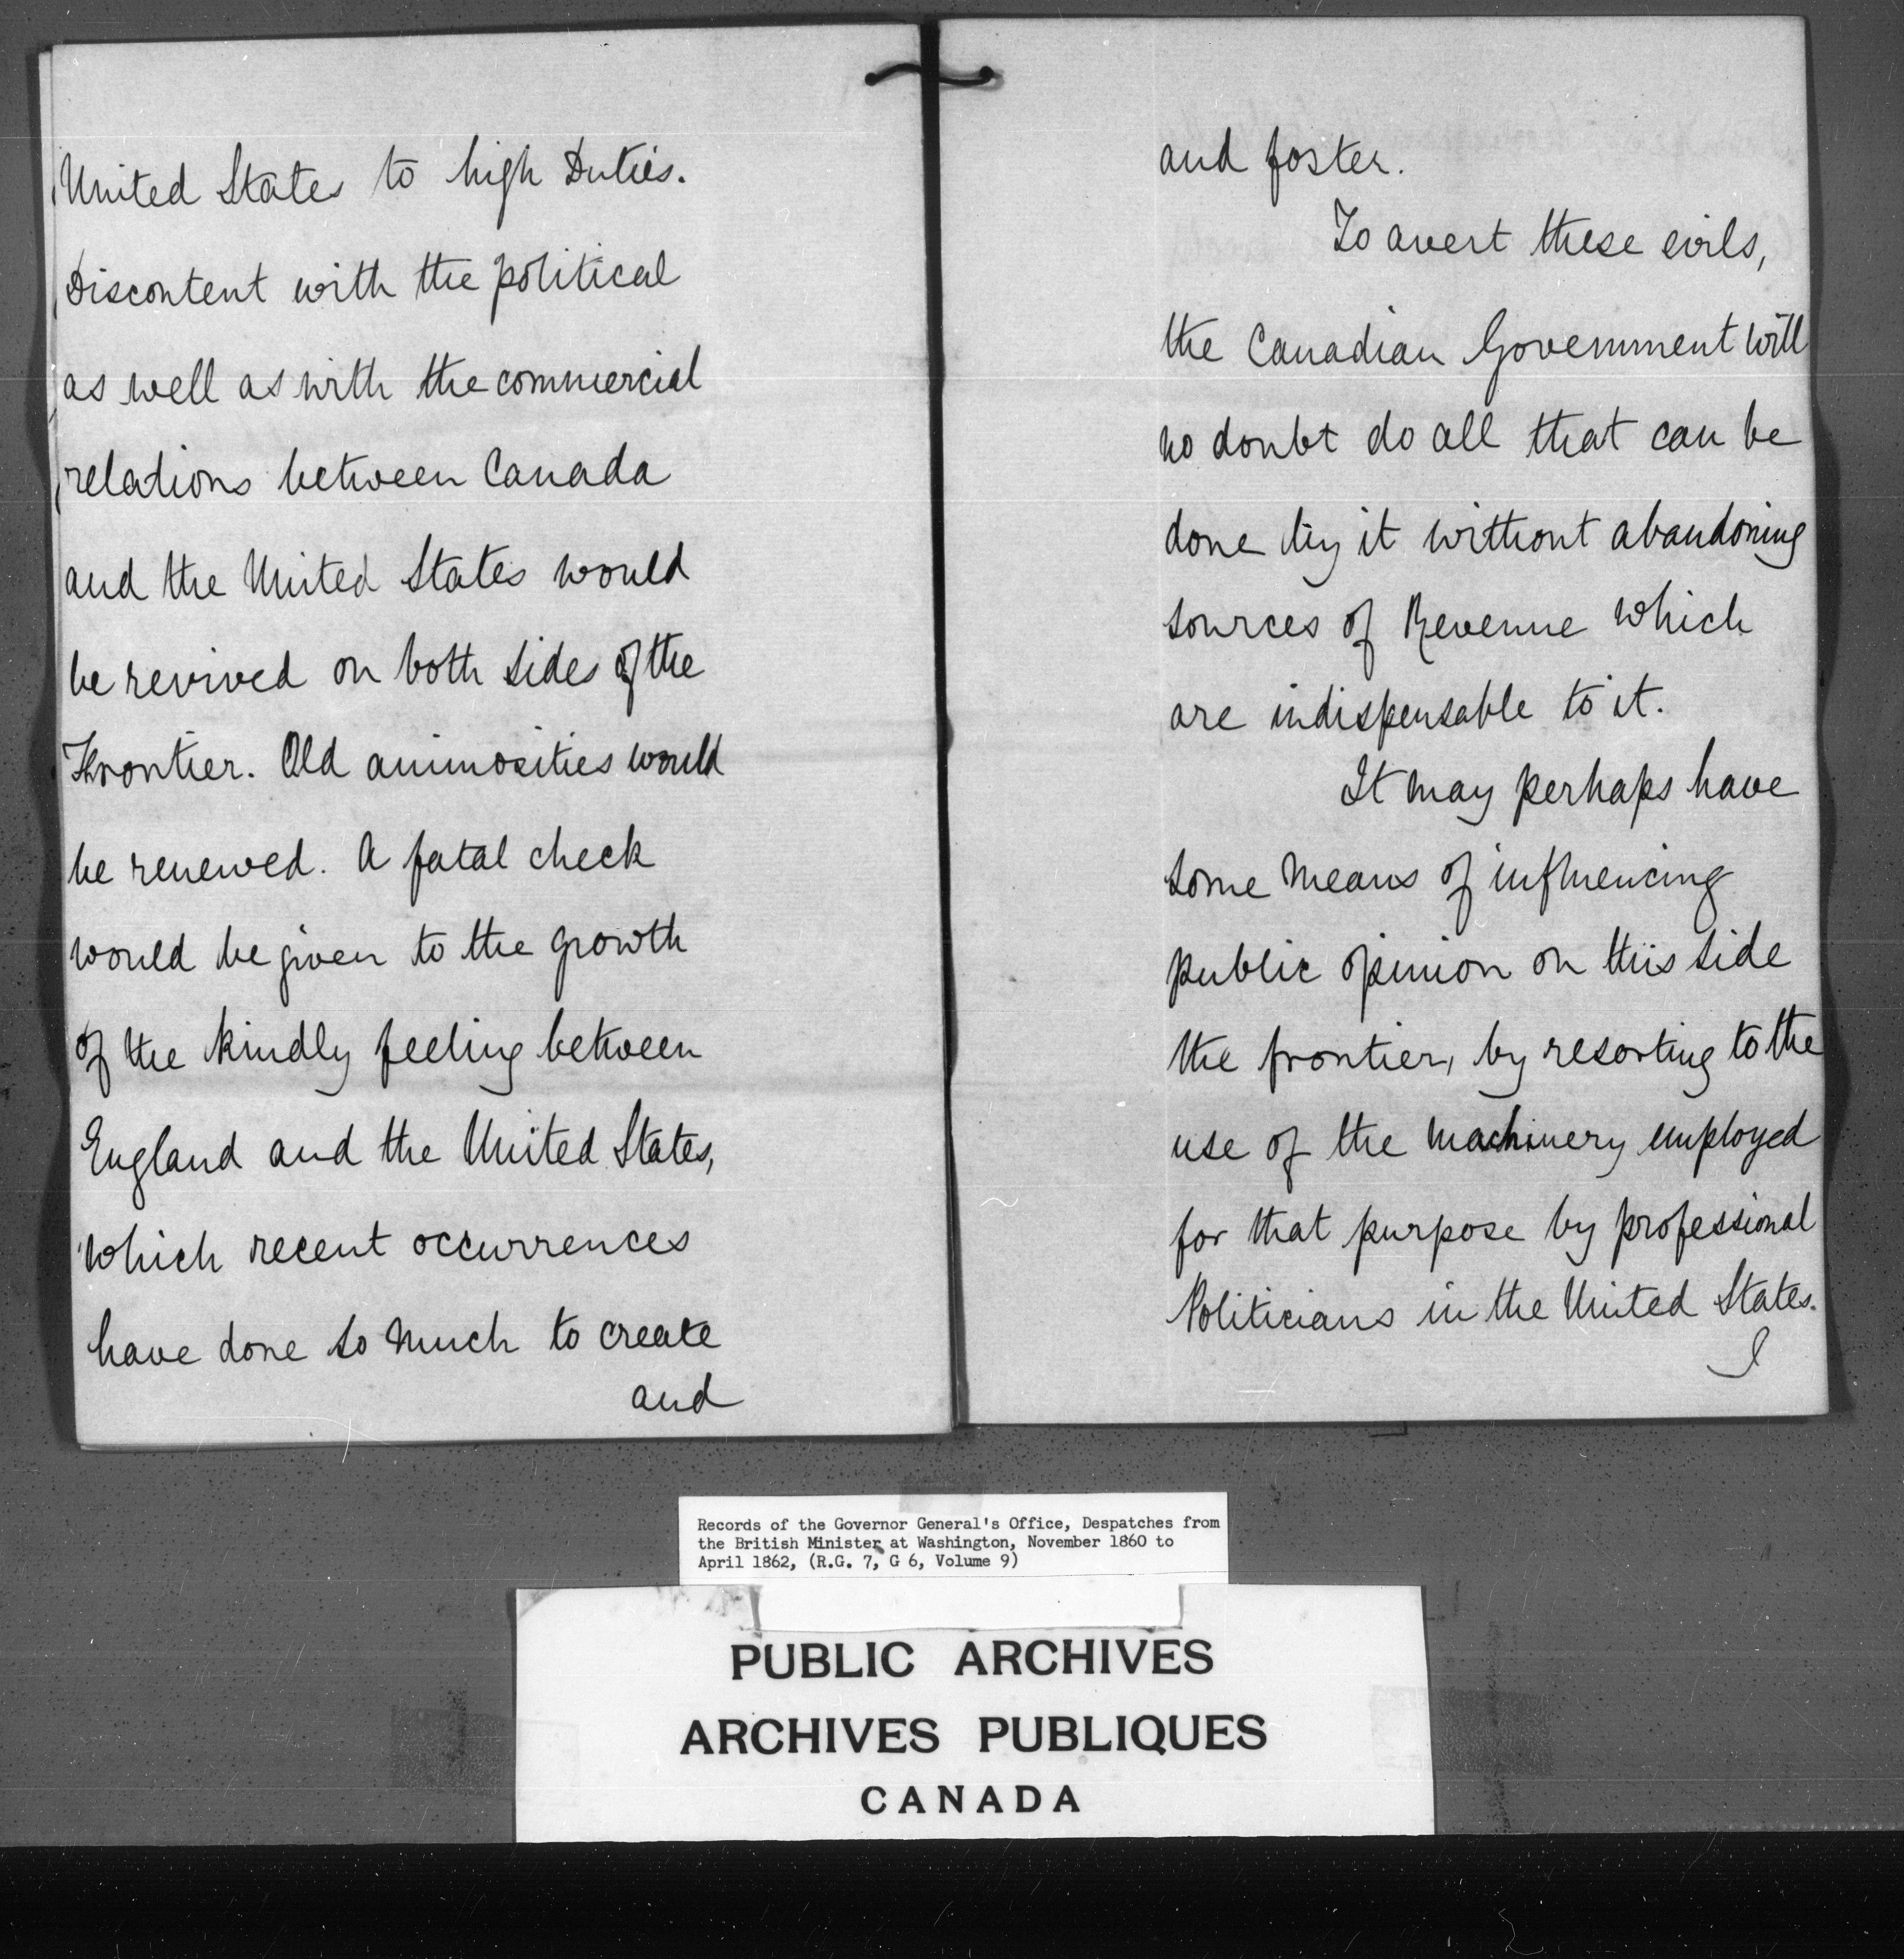 United States to high Duties.
Discontent with the political
as well as with the commercial
relations between Canada
and the United States would
be revived on both sides of the
Frontier. Old animosities would
be renewed. A fatal check
would be given to the growth
of the kindly feeling between
England and the United States,
which recent occurrences
have done so much to create
and
and foster.
To avert these evils,
the Canadian Government will
no doubt do all that can be
done by it without abandoning
sources of Revenue which
are indispensable to it.
It may perhaps have
some means of influencing
public opinion on this side
the frontier, by resorting to the
use of the machinery employed
for that purpose by professional
Politicians in the United States.
I
Records of the Governor General's Office, Despatches from
the British Minister at Washington, November 1860 to
April 1862, (R.G. 7, G 6, Volume 9)
PUBLIC ARCHIVES
ARCHIVES PUBLIQUES
CANADA